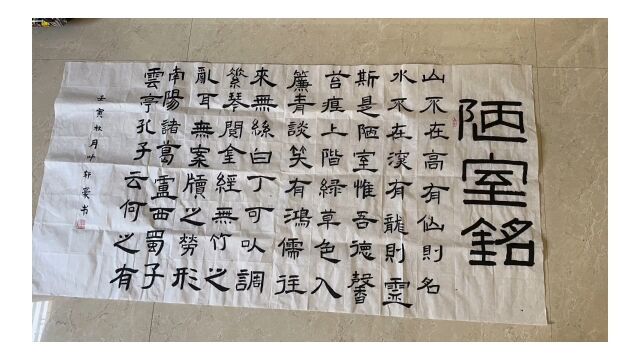 陋室銘
山不在高有仙則名
水不在深有龍則靈
斯是陋室惟吾德馨
苔痕上階綠草色入
簾青談笑有鴻儒往
來無絲白丁可以調
繁琴閱金經無竹之
亂耳無案牘之勞形
南陽諸葛廬西蜀子
雲亭孔子云何之有
壬寅秋月吟书